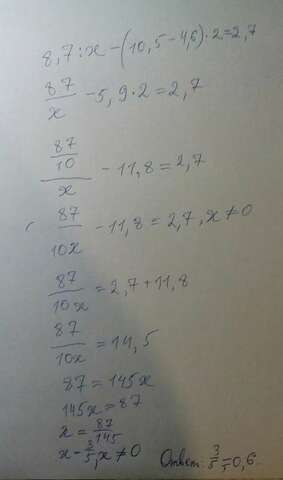 8,7:x-(10,5-4,6)·2=2,7
8.7/x - 5,9·2=2,7
(87/10)/x - 11,8=2,7
87/10x - 11,8=2,7, x≠0
87/10x = 2,7+11,8
87/10x = 14,5
87=145x
145x=87
x=87/145
x-3/5, x≠0 Ответ: 3/5=0,6.